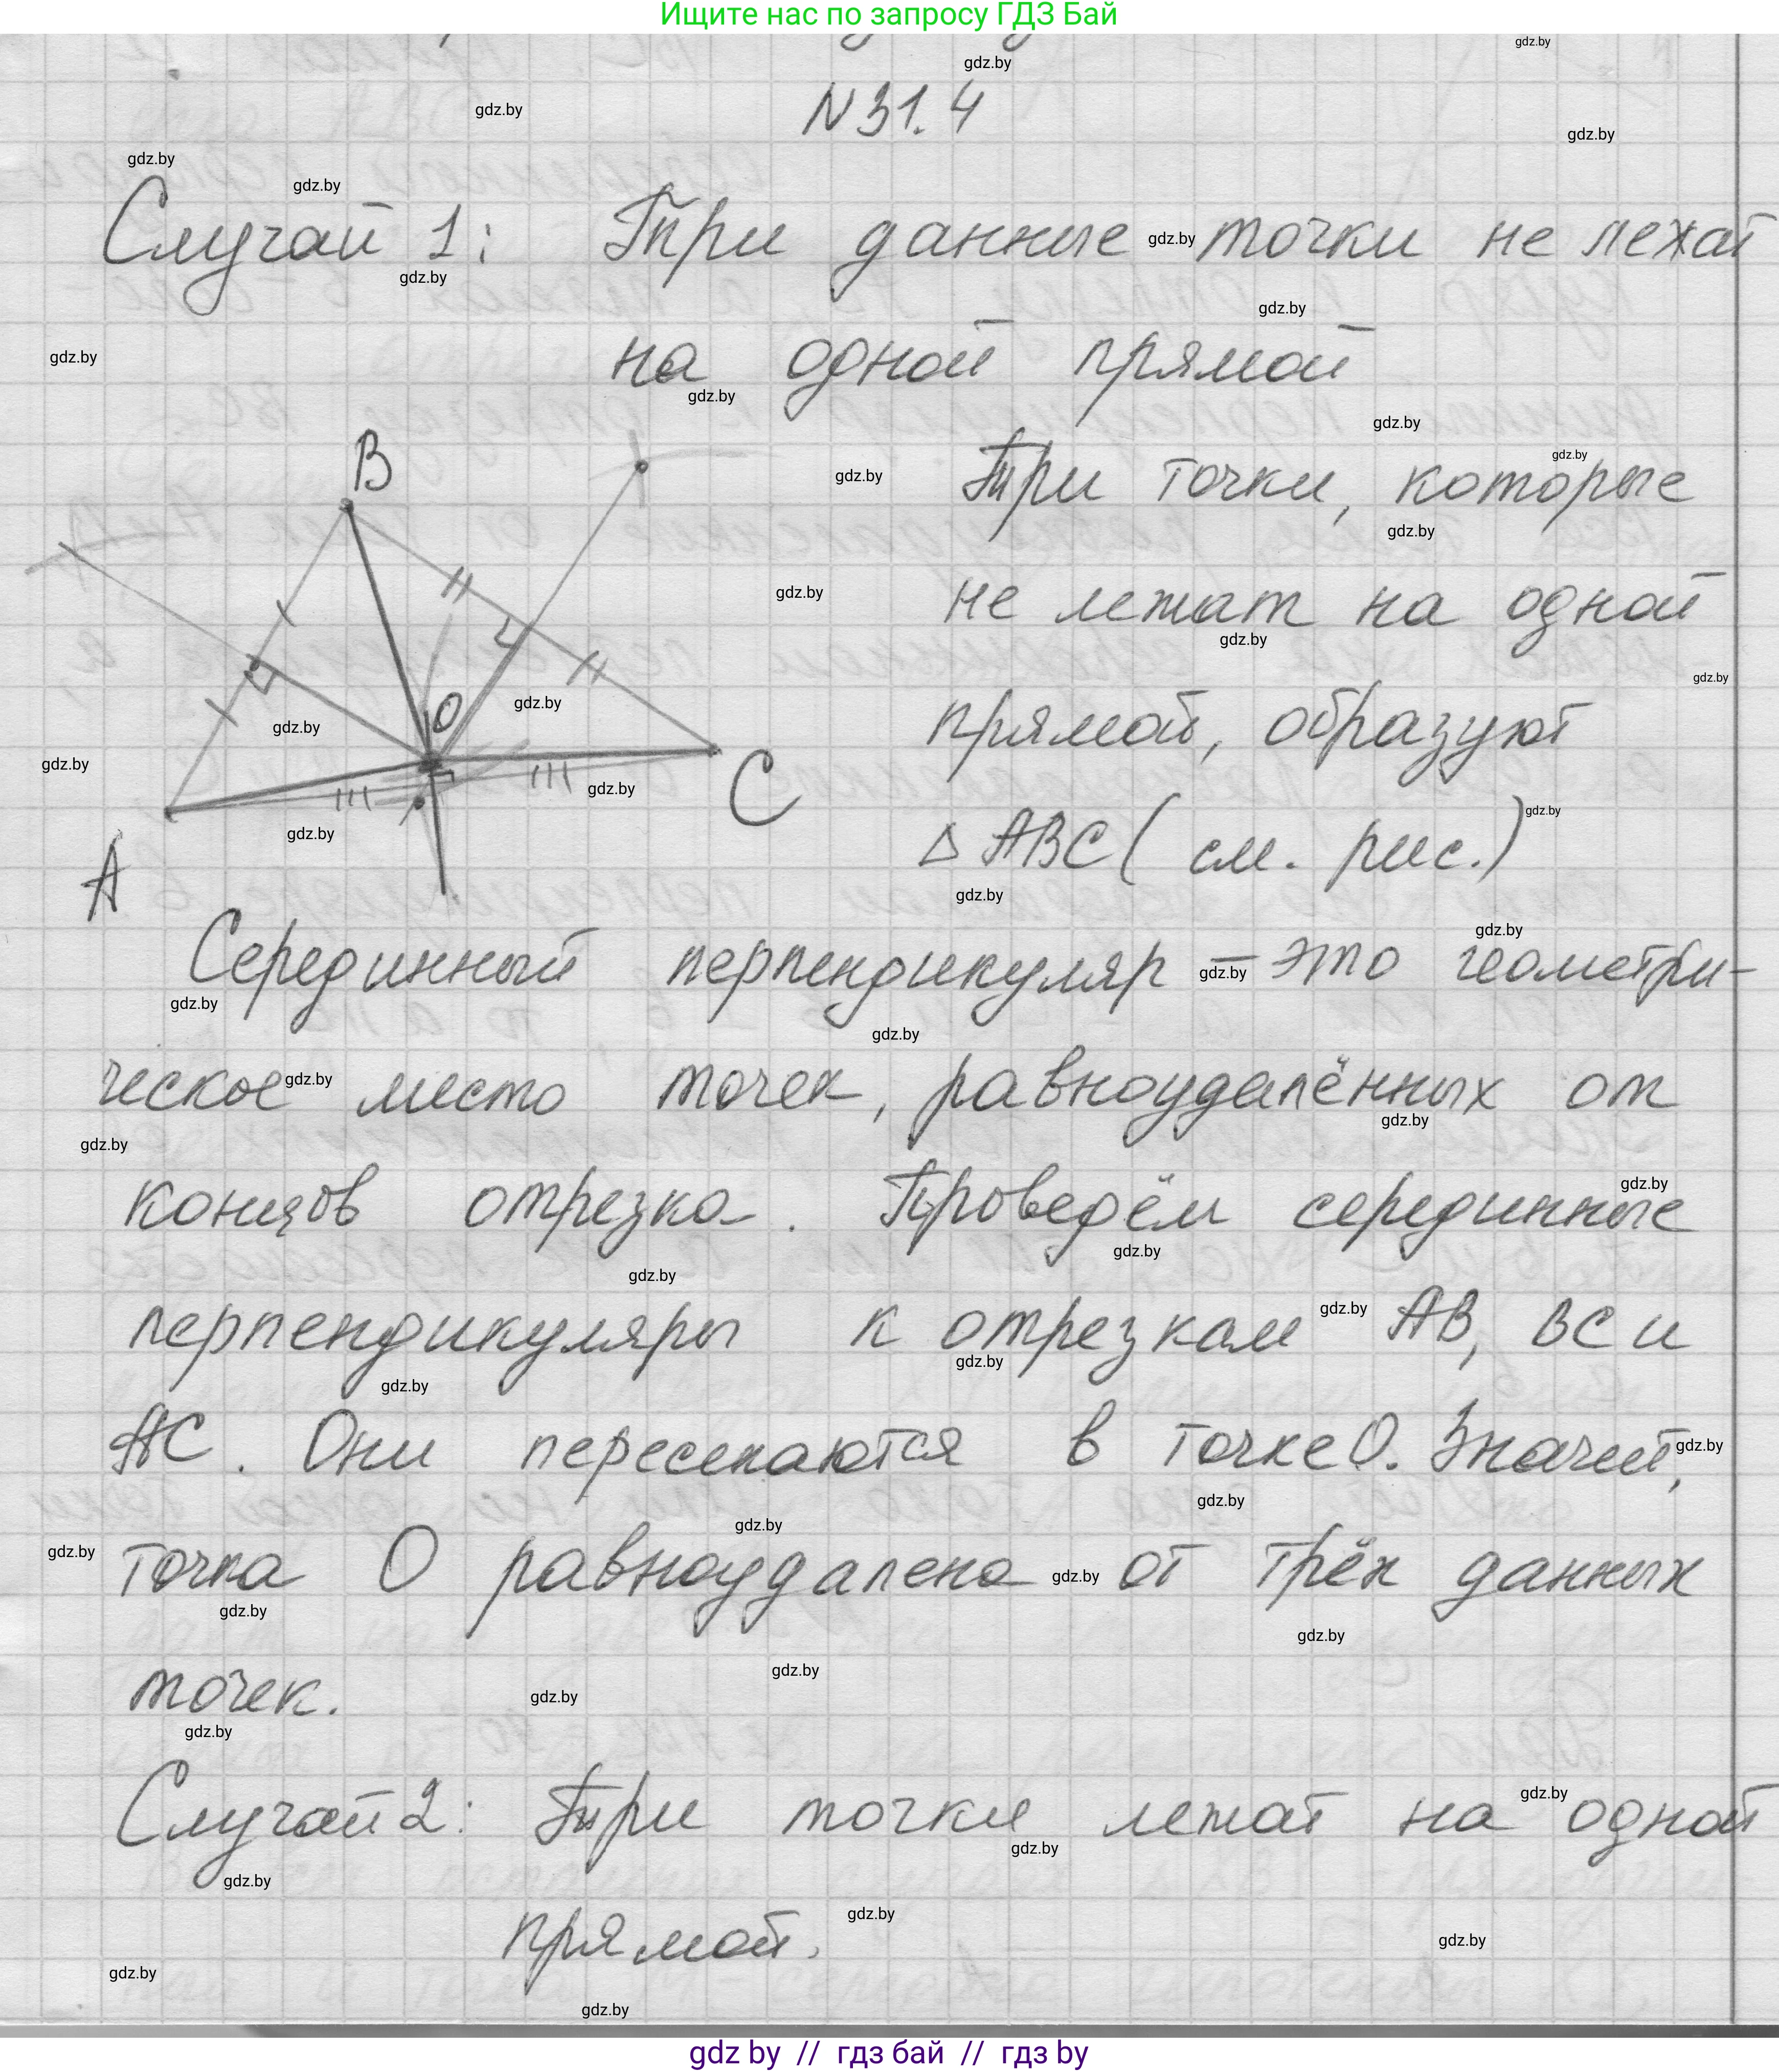 Ищите нас по запросу ГДЗ Бай
gdz.by
N 31.4
Случай 1: Три данные точки не лежат
на одной прямой
B
O
C
A
Три точки, которые
не лежат на одной
прямой, образуют
△ ABC ( см. рис.)
Серединный перпендикуляр – это геометри-
ческое место точек, равноудалённых от
концов отрезка. Проведём серединные
перпендикуляры к отрезкам AB, BC и
AC. Они пересекаются в точке O. Значит,
точка O равноудалена от трёх данных
точек.
Случай 2: Три точки лежат на одной
прямой.
gdz by // гдз бай // гдз by